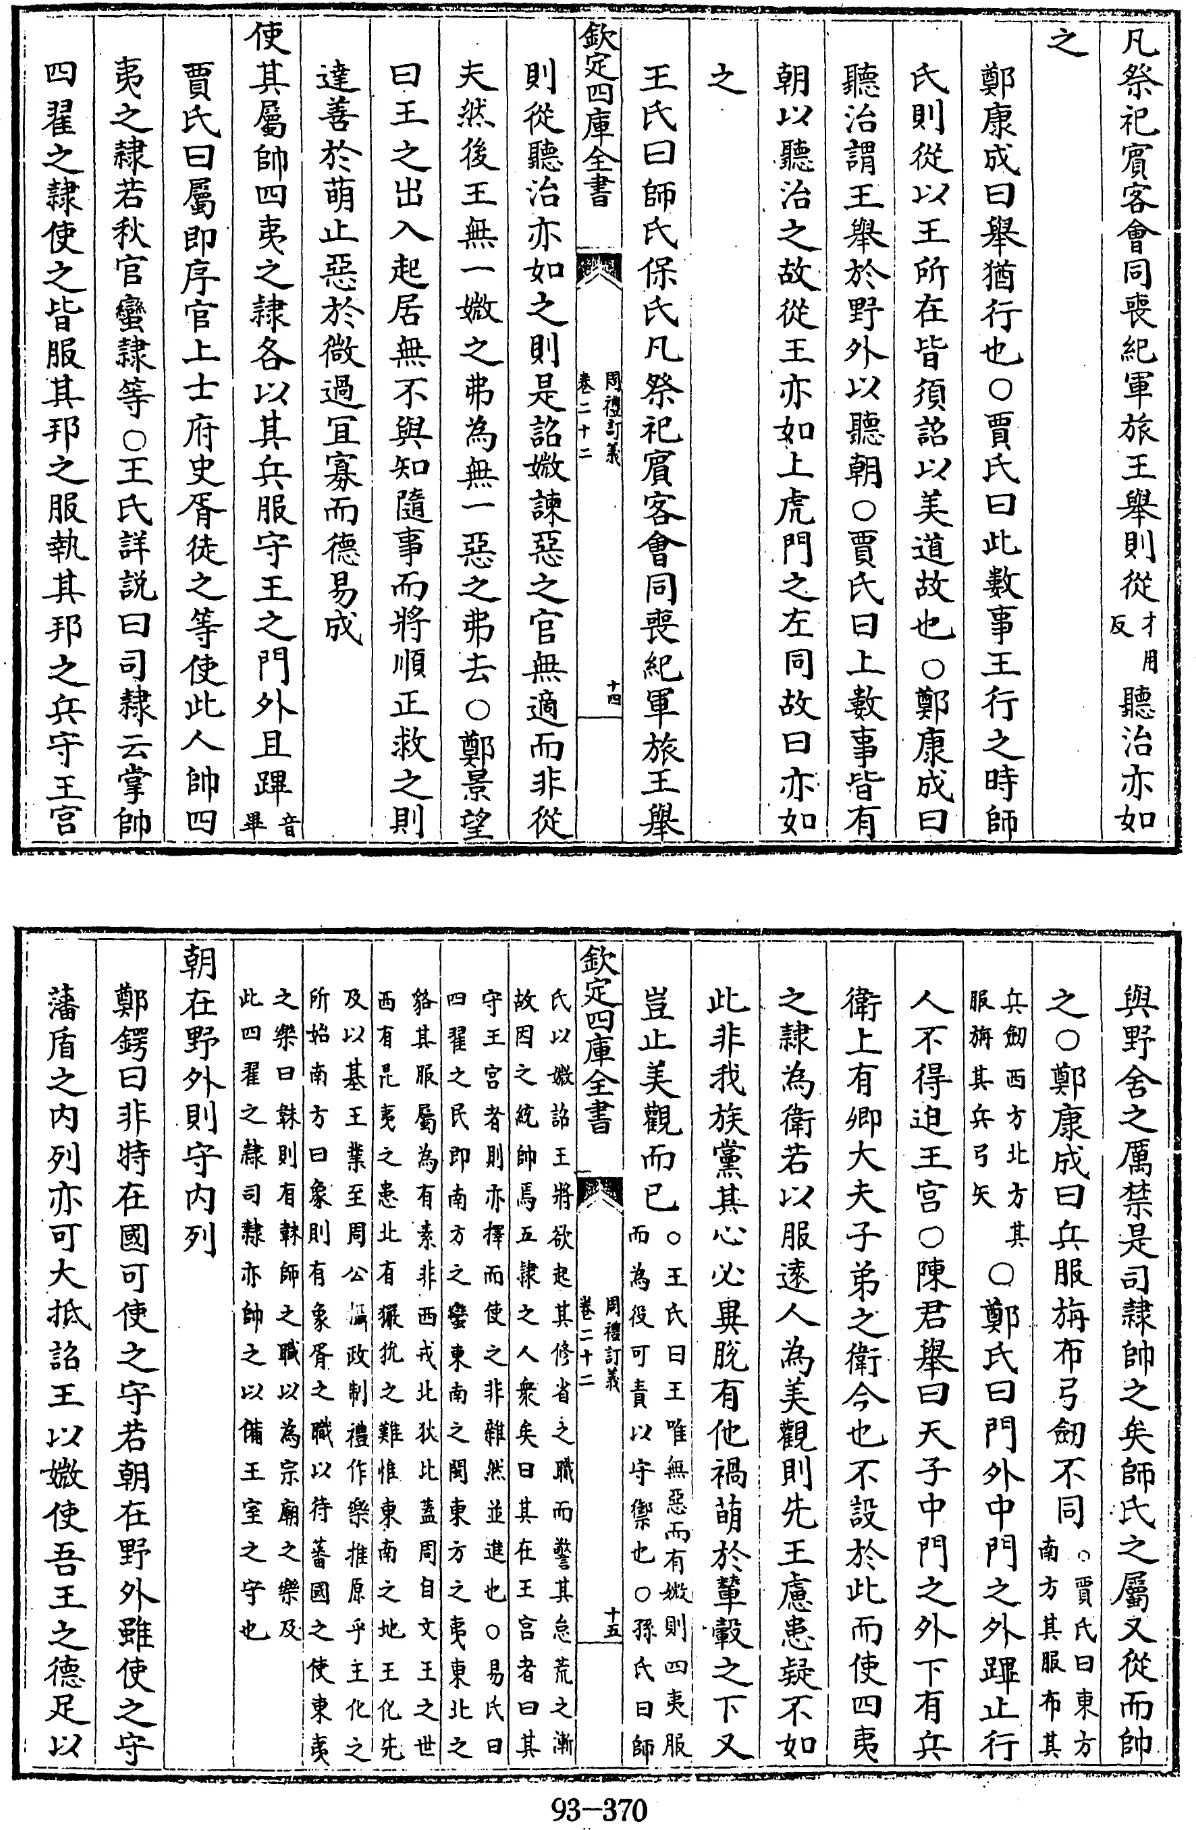 凡祭祀賓客會同喪紀軍旅王舉則從才用反聽治亦如
之
鄭康成曰舉猶行也○賈氏曰此數事王行之時師
氏則從以王所在皆須詔以美道故也○鄭康成曰
聽治謂王舉於野外以聽朝○賈氏曰上數事皆有
朝以聽治之故從王亦如上虎門之左同故曰亦如
之
王氏曰師氏保氏凡祭祀賓客會同喪紀軍旅王舉
欽定四庫全書
周禮訂義
卷二十二
十四
則從聽治亦如之則是詔媺諫惡之官無適而非從
夫然後王無一媺之弗為無一惡之弗去○鄭景望
曰王之出入起居無不與知隨事而將順正救之則
達善於萌止惡於微過宜寡而德易成
使其屬帥四夷之隸各以其兵服守王之門外且蹕音畢
賈氏曰屬即序官上士府史胥徒之等使此人帥四
夷之隸若秋官蠻隸等○王氏詳説曰司隸云掌帥
四翟之隸使之皆服其邦之服執其邦之兵守王宮
與野舍之厲禁是司隸帥之矣師氏之屬又從而帥
之○鄭康成曰兵服旃布弓劒不同○賈氏曰東方南方其服布其
兵劒西方北方其服旃其兵弓矢○鄭氏曰門外中門之外蹕止行
人不得迫王宮○陳君舉曰天子中門之外下有兵
衛上有卿大夫子弟之衛今也不設於此而使四夷
之隸為衛若以服遠人為美觀則先王慮患疑不如
此非我族黨其心必異脫有他禍萌於輦轂之下又
豈止美觀而已○王氏曰王唯無惡而有媺則四夷服而為役可責以守禦也○孫氏曰師
欽定四庫全書
周禮訂義
卷二十二
十五
氏以媺詔王將欲起其修省之職而警其怠荒之漸
故因之統帥焉五隸之人衆矣曰其在王宮者曰其
守王宮者則亦擇而使之非雜然並進也○易氏曰
四翟之民即南方之蠻東南之閩東方之夷東北之
貉其服屬為有素非西戎北狄比蓋周自文王之世
西有昆夷之患北有玁狁之難惟東南之地王化先
及以基王業至周公攝政制禮作樂推原乎主化之
所始南方曰象則有象胥之職以待蕃國之使東夷
之樂曰韎則有韎師之職以為宗廟之樂及
此四翟之隸司隸亦帥之以備王室之守也
朝在野外則守内列
鄭鍔曰非特在國可使之守若朝在野外雖使之守
藩盾之内列亦可大抵詔王以媺使吾王之德足以
93-370